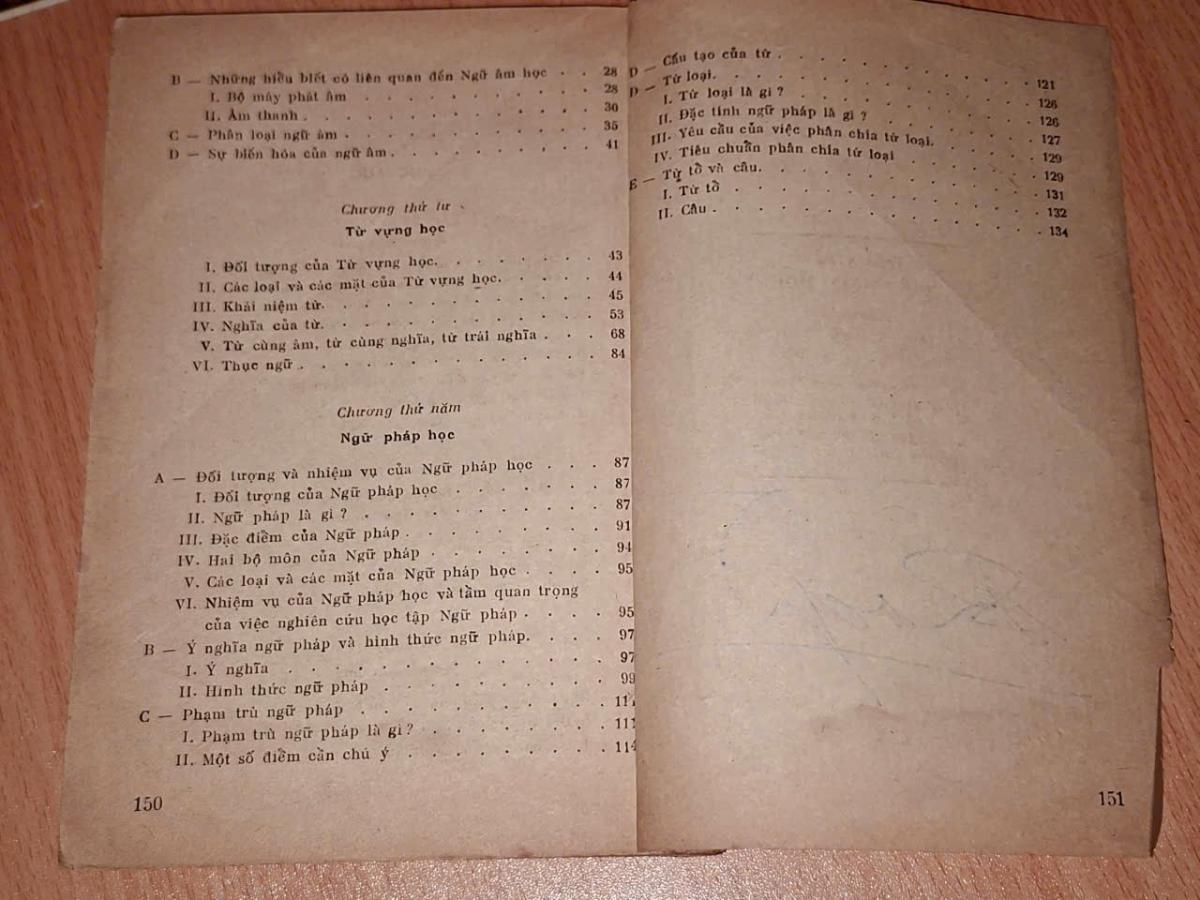 B — Những hiểu biết có liên quan đến Ngữ âm học . . 28
I. Bộ máy phát âm . . . . . . . . . . 28
II. Âm thanh . . . . . . . . . . . . 30
C — Phân loại ngữ âm . . . . . . . . . . 35
D — Sự biến hóa của ngữ âm . . . . . . . . . 41
Chương thứ tư
Từ vựng học
I. Đối tượng của Từ vựng học. . . . . . . . 43
II. Các loại và các mặt của Từ vựng học. . . . . 44
III. Khái niệm từ. . . . . . . . . . . . 45
IV. Nghĩa của từ. . . . . . . . . . . . 53
V. Từ cùng âm, từ cùng nghĩa, từ trái nghĩa . . . 68
VI. Thục ngữ . . . . . . . . . . . . 84
Chương thứ năm
Ngữ pháp học
A — Đối tượng và nhiệm vụ của Ngữ pháp học . . . 87
I. Đối tượng của Ngữ pháp học . . . . . . . 87
II. Ngữ pháp là gì ? . . . . . . . . . . 87
III. Đặc điểm của Ngữ pháp . . . . . . . . 91
IV. Hai bộ môn của Ngữ pháp . . . . . . . 94
V. Các loại và các mặt của Ngữ pháp học . . . . 95
VI. Nhiệm vụ của Ngữ pháp học và tầm quan trọng
của việc nghiên cứu học tập Ngữ pháp . . . . 95
B — Ý nghĩa ngữ pháp và hình thức ngữ pháp. . . . 97
I. Ý nghĩa . . . . . . . . . . . . 97
II. Hình thức ngữ pháp . . . . . . . . . 99
C — Phạm trù ngữ pháp . . . . . . . . . . 111
I. Phạm trù ngữ pháp là gì ? . . . . . . . 111
II. Một số điểm cần chú ý . . . . . . . . 114
150
D — Cấu tạo của từ . . . . . . . . . . 121
Đ — Từ loại. . . . . . . . . . . . . 126
I. Từ loại là gì ? . . . . . . . . . . 126
II. Đặc tính ngữ pháp là gì ? . . . . . . . 127
III. Yêu cầu của việc phân chia từ loại. . . . . 129
IV. Tiêu chuẩn phân chia từ loại . . . . . . 129
E — Từ tổ và câu. . . . . . . . . . . 131
I. Từ tổ . . . . . . . . . . . . . 132
II. Câu . . . . . . . . . . . . . 134
151